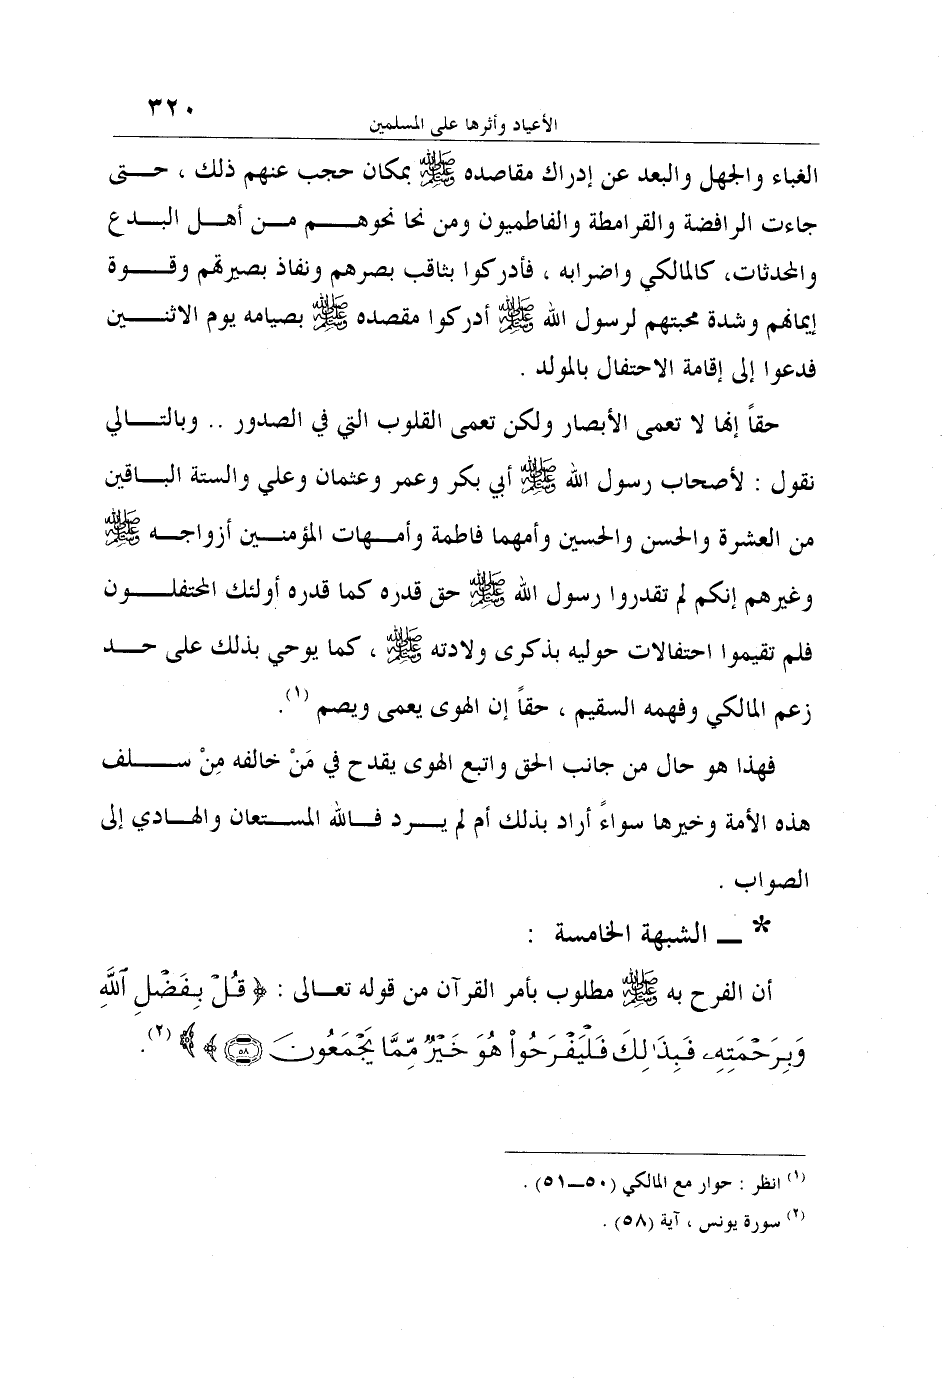 ٣٢٠
الأعياد وأثرها على المسلمين
الغباء والجهل والبعد عن إدراك مقاصده ﷺ بمكان حجب عنهم ذلك ، حتى
جاءت الرافضة والقرامطة والفاطميون ومن نحا نحوهم من أهل البدع
والمحدثات، كالمالكي واضرابه ، فأدركوا بثاقب بصرهم ونفاذ بصيرتهم وقوة
إيمانهم وشدة محبتهم لرسول الله ﷺ أدركوا مقصده ﷺ بصيامه يوم الاثنين
فدعوا إلى إقامة الاحتفال بالمولد .
حقاً إنها لا تعمى الأبصار ولكن تعمى القلوب التي في الصدور .. وبالتالي
نقول : لأصحاب رسول الله ﷺ أبي بكر وعمر وعثمان وعلي والستة الباقين
من العشرة والحسن والحسين وأمهما فاطمة وأمهات المؤمنين أزواجه ﷺ
وغيرهم إنكم لم تقدروا رسول الله ﷺ حق قدره كما قدره أولئك المحتفلون
فلم تقيموا احتفالات حوليه بذكرى ولادته ﷺ ، كما يوحي بذلك على حد
زعم المالكي وفهمه السقيم ، حقاً إن الهوى يعمى ويصم (١).
فهذا هو حال من جانب الحق واتبع الهوى يقدح في مَنْ خالفه مِنْ سلف
هذه الأمة وخيرها سواءً أراد بذلك أم لم يرد فالله المستعان والهادي إلى
الصواب .
* ــ الشبهة الخامسة :
أن الفرح به ﷺ مطلوب بأمر القرآن من قوله تعالى : ﴿ قُلْ بِفَضْلِ ٱللَّهِ
وَبِرَحْمَتِهِۦ فَبِذَٰلِكَ فَلْيَفْرَحُوا۟ هُوَ خَيْرٌ مِّمَّا يَجْمَعُونَ ٥٨ ﴾ ﴾ (٢).
(١) انظر : حوار مع المالكي (٥٠ــ٥١) .
(٢) سورة يونس ، آية (٥٨) .